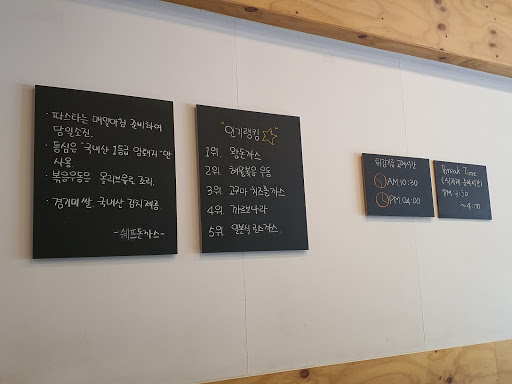 · 파스타는 매일아침 준비하여
당일소진.
· 등심은 "국내산 1등급 암돼지"만
사용.
· 볶음우동은 올리브유로 조리.
· 경기미 쌀. 국내산 김치 제공.
- 쉐프돈까스 -
"인기랭킹☆"
1위. 왕돈까스
2위. 해물볶음 우동
3위. 고구마 치즈돈까스
4위. 까르보나라
5위. 일본식 로스까스.
튀김기름 교체시간
AM 10:30
PM 04:00
Break Time
(식재료 준비시간)
PM 3:30
~ 4:00